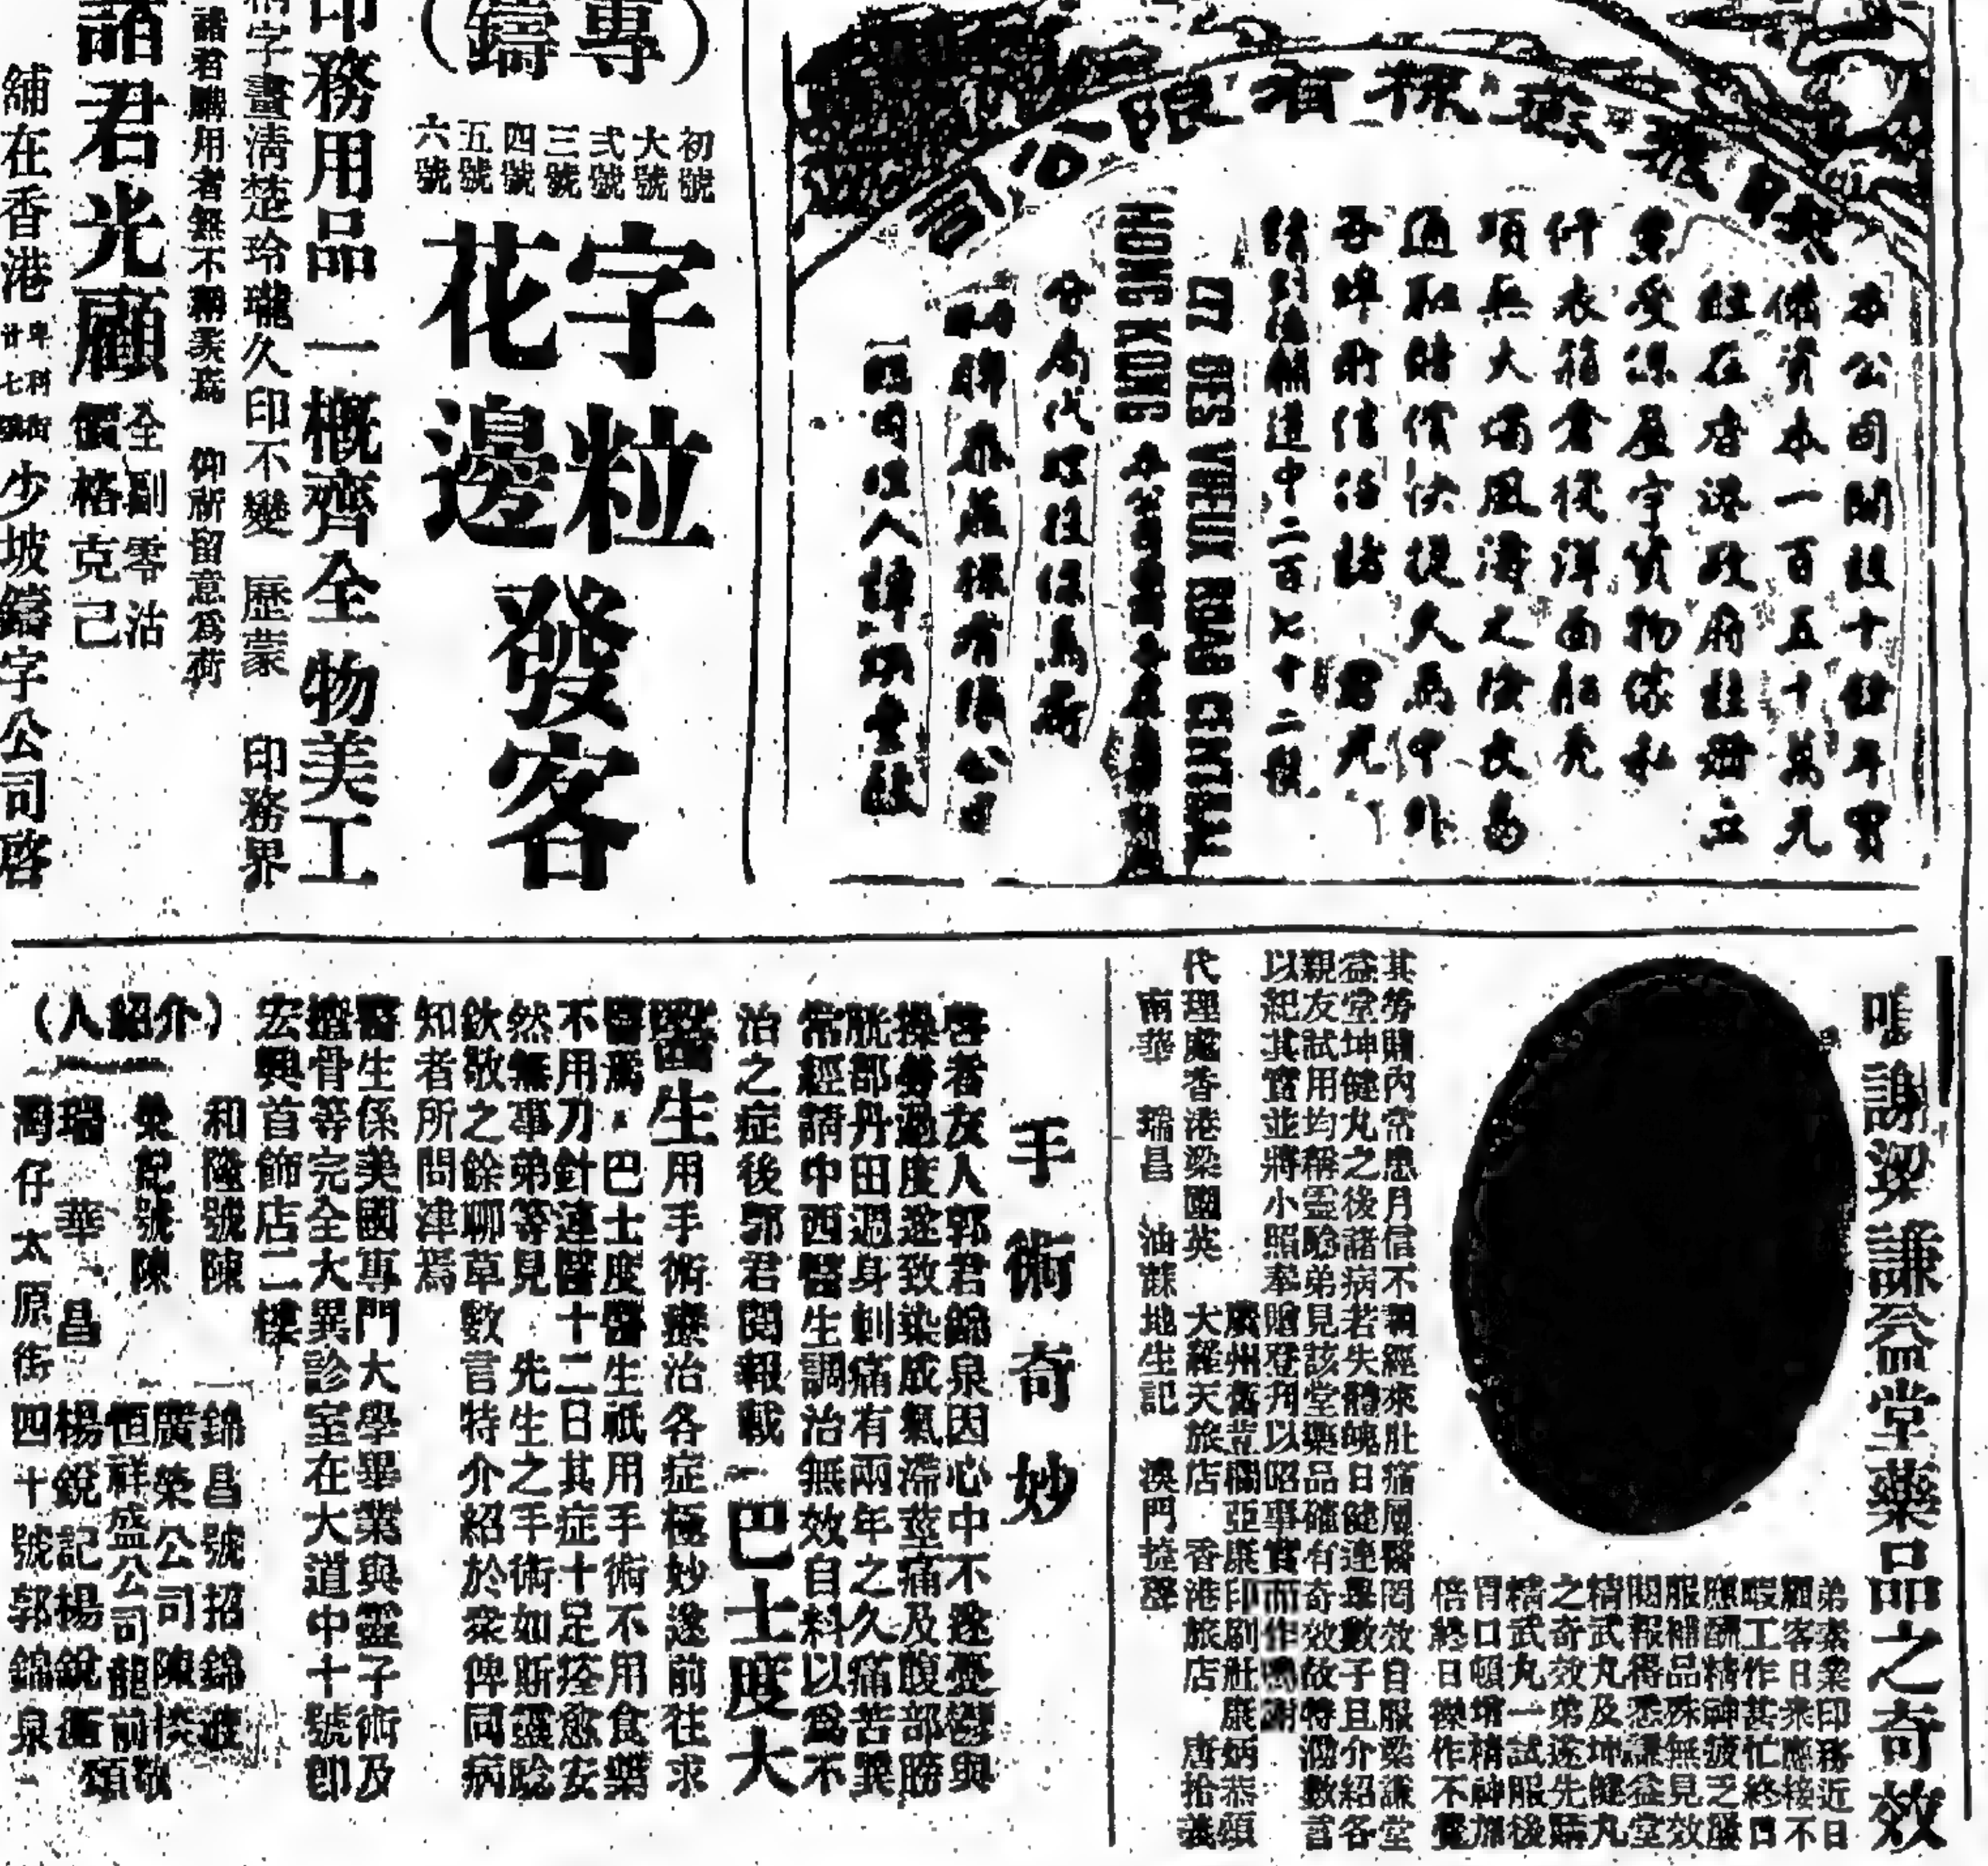 本公司開設十餘年實
備資本一百五十萬元
經在香港政府註冊立
案受保屋宇貨物傢私
什衣箱倉棧洋面船壳
頂無大燭風濤之險衣易
通融賠償快捷久為中外
各埠所信治 君光
德輔道中二百七十二號
27 DES VOEUX ROAD CENTRAL
HONG KONG
公司
(專鑄)
初號
大號
弍號
三號
四號
五號
六號
字粒
花邊
發客
印務用品一概齊全物美工
字畫清楚玲瓏久印不變 歷蒙 印務界
諸君購用者無不稱羨焉 仰祈留意為荷
諸君光顧 全副零沽
價格克己
舖在香港 卑利街
廿七號 少坡鑄字公司啓
鳴謝梁謙益堂藥品之奇效
弟素業印務近日
顧客日衆應接不
暇工作甚忙終日
應酬精神疲乏屢
服補品殊無見效
閱報得悉謙益堂
精武丸及坤健丸
之奇效弟遂先購
精武丸一試服後
胃口頓增精神加
倍終日操作不覺
其勞賤內常患月信不調經來肚痛屢醫罔效自服梁謙堂
益堂坤健丸之後諸病若失體魄日健連舉數子且介紹各
親友試用均稱靈驗弟見該堂藥品確有奇效故特泐數言
以紀其實並將小照奉贈登刊以昭事實而作鳴謝
廣州舊荳欄亞康印刷社康炳恭頌
代理處香港梁國英 大羅天旅店 香港旅店 唐拾義
南華 瑞昌 油蔴地生記 澳門
手術奇妙
啓者友人郭君錦泉因心中不遂憂鬱與
操勞過度遂致染成氣滯莖痛及腹部膀
胱部丹田過身刺痛有兩年之久痛苦異
常經請中西醫生調治無效自料以為不
治之症後郭君閱報載 巴士度大
醫生用手術療治各症極妙遂前往求
醫焉 巴士度醫生祇用手術不用食藥
不用刀針連醫十二日其症十足痊愈安
然無事弟等見 先生之手術如斯靈驗
欽敬之餘聊草數言特介紹於衆俾同病
知者所問津焉
醫生係美國專門大學畢業與靈子術及
搖骨等完全大異診室在大道中十號卽
宏興首飾店二樓
(介紹人)
和隆號陳 錦昌號招錦
榮記號陳 廣榮公司陳
恒祥盛公司龍前 敬頌
瑞華昌 楊銳記楊銳
灣仔太原街四十號郭錦泉